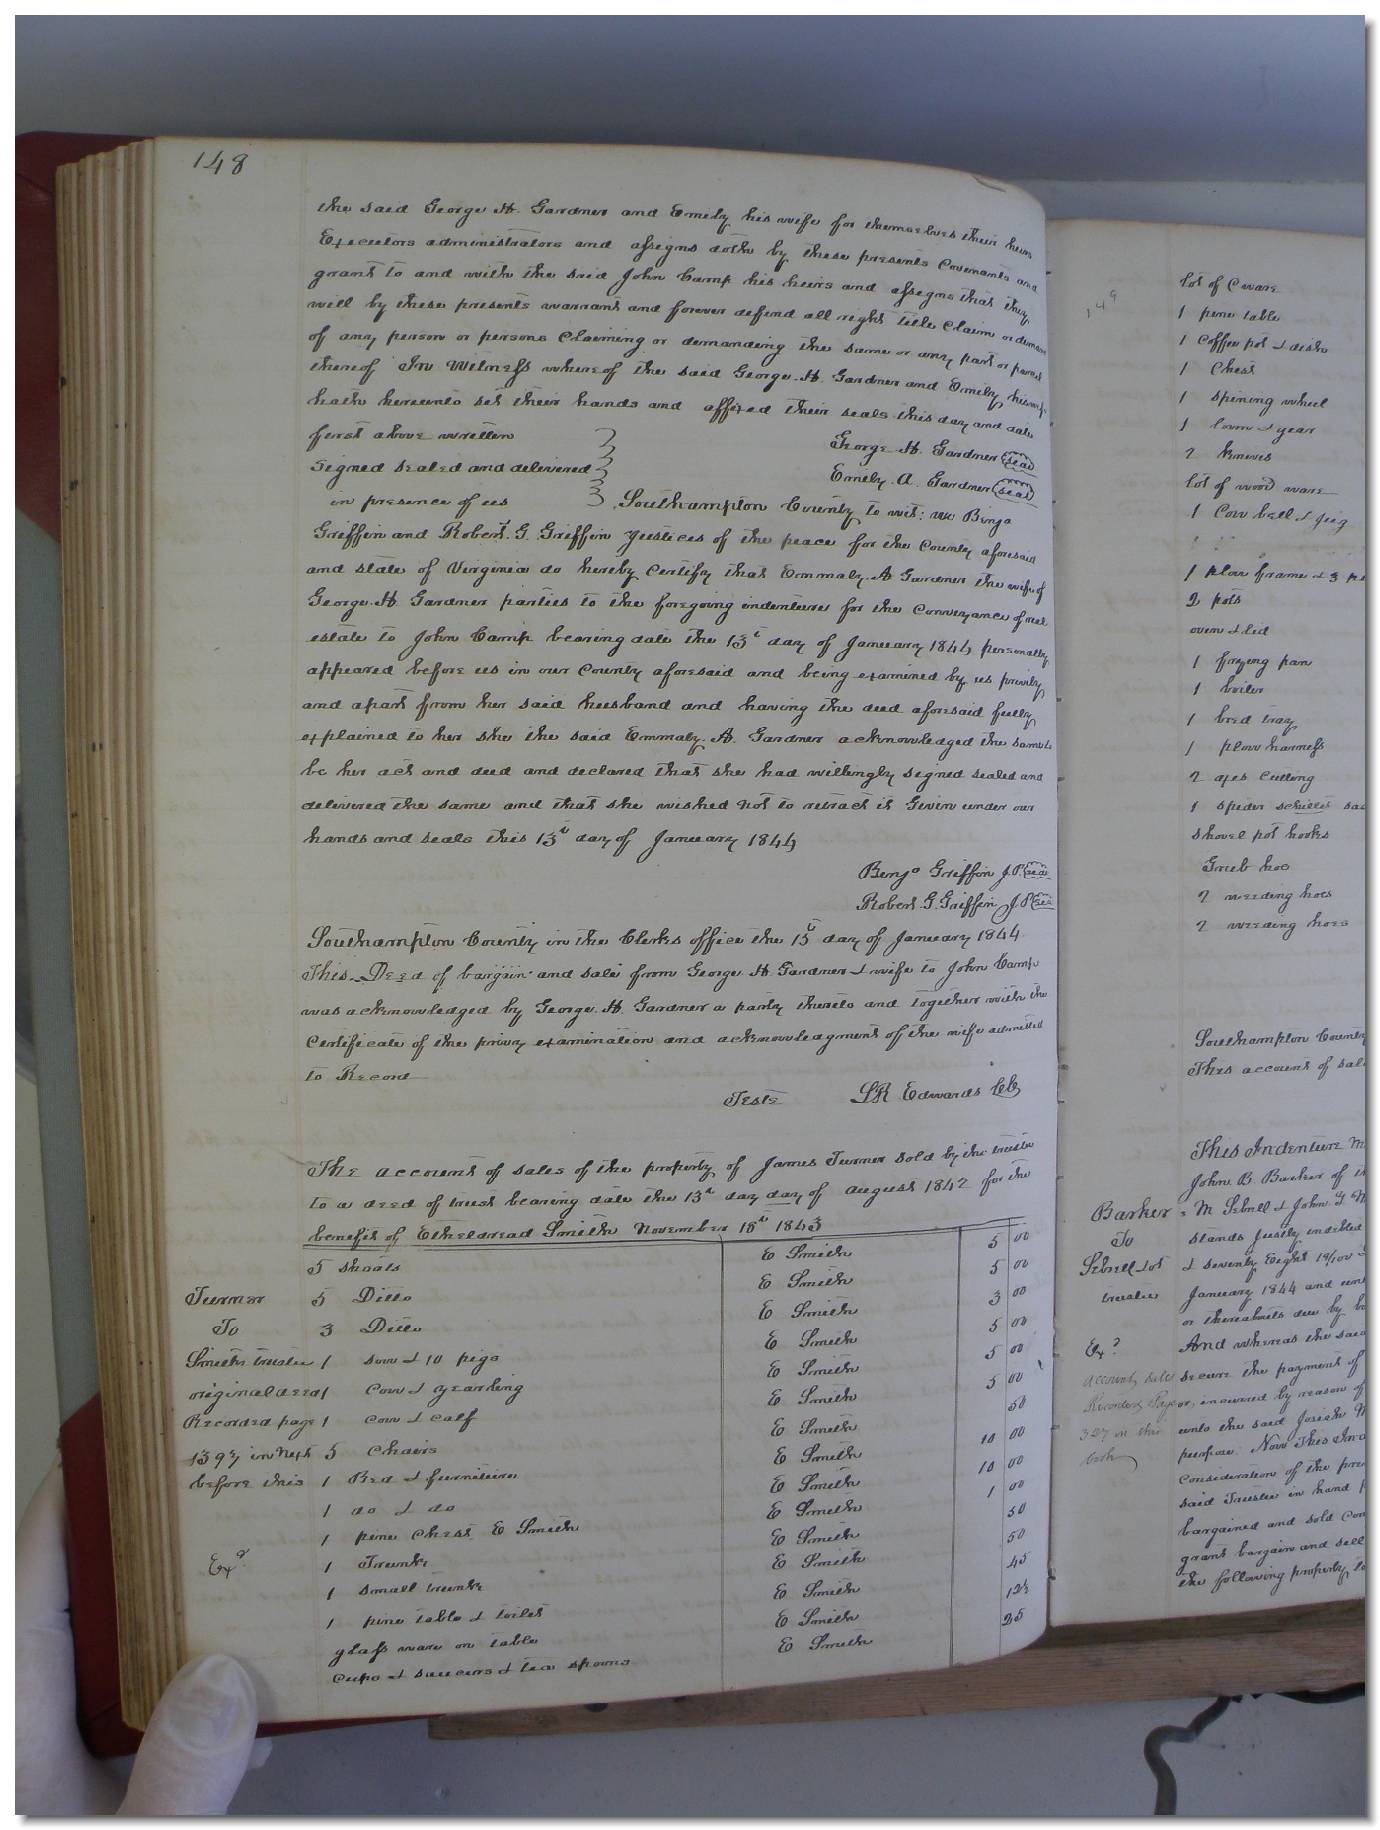 148
the said George H. Gardner and Emily his wife for themselves their heirs
Executors administrators and assigns doth by these presents Covenants and
grant to and with the said John Camp his heirs and assigns that they
will by these presents warrant and forever defend all right title Claim or demand
of any person or persons Claiming or demanding the same or any part or parcel
thereof In Witness whereof the said George H. Gardner and Emily his wife
hath hereunto set their hands and affixed their seals this day and date
first above written
George H. Gardner (seal)
signed sealed and delivered
Emily A. Gardner (seal)
in presence of us
Southampton County to wit: we Benjo
Griffin and Robert G. Griffin Justices of the peace for the County aforesaid
and state of Virginia do hereby Certify that Emmaly A Gardner the wife of
George H. Gardner parties to the foregoing indenture for the Conveyance of real
estate to John Camp bearing date the 13th day of January 1844 personally
appeared before us in our County aforesaid and being examined by us privily
and apart from her said husband and having the deed aforesaid fully
explained to her she the said Emmaly A. Gardner acknowledged the same to
be her act and deed and declared that she had willingly signed sealed and
delivered the same and that she wished not to retract it Given under our
hands and seals this 13th day of January 1844
Benjo Griffin J.P. (seal)
Robert G. Griffin J.P. (seal)
Southampton County in the Clerks office the 15th day of January 1844
This Deed of bargain and sale from George H. Gardner & wife to John Camp
was acknowledged by George H. Gardner a party thereto and together with the
Certificate of the privy examination and acknowledgment of the wife admitted
to Record
Teste LR Edwards Clk
The account of sales of the property of James Turner sold by the trustee
to a deed of trust bearing date the 13th day day of august 1842 for the
benefit of Etheldread Smith November 18th 1843
5 shoats E Smith 5 00
Turner 5 Ditto E Smith 5 00
To 3 Ditto E Smith 3 00
Smiths trustee 1 sow & 10 pigs E Smith 5 00
original deed 1 cow & yearling E Smith 5 00
Recorded page 1 cow & calf E Smith 5 00
139 in next 5 chairs E Smith 50
before this 1 Bed & furniture E Smith 10 00
1 do & do E Smith 10 00
1 pine chest E Smith E Smith 1 00
Exd. 1 Trunk E Smith 50
1 small trunk E Smith 50
1 pine table & toilet E Smith 45
glass ware on table E Smith 12½
cups & saucers & tea spoons E Smith 25
149
lot of C ware
1 pine table
1 Coffee pot & dish
1 Chest
1 spining wheel
1 loom & gear
2 knives
lot of wood ware
1 Cow bell & jug
1 plow frame & 3
2 pots
oven & lid
1 frying pan
1 boiler
1 bred tray
1 plow harness
2 axes Cutting
1 spider schillet
shovel pot hooks
Grub hoe
2 weeding hoes
2 weeding hoes
Southampton County
This account of sal
This Indenture M
John B. Barker of
Barker & M Sebrell & John G
To stands justly indebted
Sebrell & ot & seventy Eight 19/100
trustee January 1844 and
or thereabouts due by
Exd And whereas the said
account sales secure the payment of
Recorded Page or incurred by reason of
327 in this unto the said Josiah
book purpose Now This Ind
Consideration of the pre
said Trustee in hand p
bargained and sold Con
grant bargain and sell
the following property to